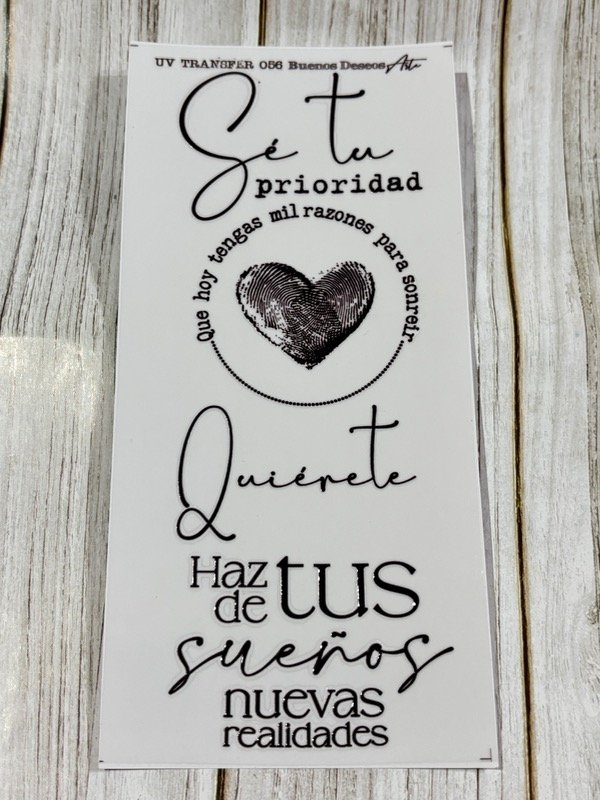 UV TRANSFER 056 Buenos Deseos Arte
Sé tu
prioridad
Que hoy tengas mil razones para sonreir.
Quiérete
Haz
de tus
sueños
nuevas
realidades